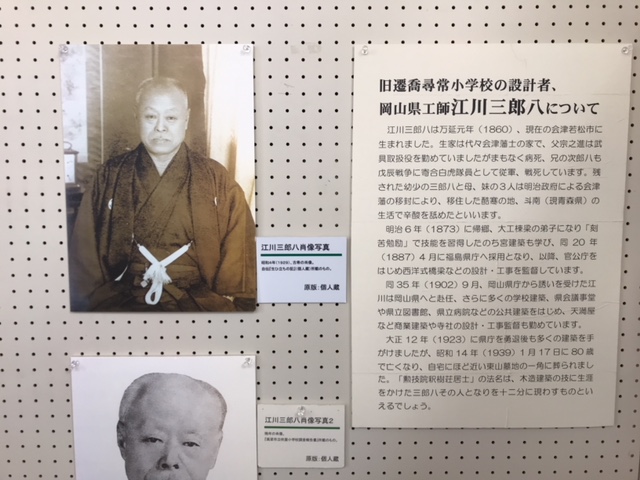 旧遷喬尋常小学校の設計者、
岡山県工師江川三郎八について
江川三郎八は万延元年（1860）、現在の会津若松市に
生まれました。生家は代々会津藩士の家で、父宗之進は武
具取扱役を勤めていましたがまもなく病死、兄の次郎八も
戊辰戦争に寄合白虎隊員として従軍、戦死しています。残
された幼少の三郎八と母、妹の３人は明治政府による会津
藩の移封により、移住した酷寒の地、斗南（現青森県）の
生活で辛酸を舐めたといいます。
明治６年（1873）に帰郷、大工棟梁の弟子になり「刻
苦勉励」で技能を習得したのち宮建築も学び、同 20 年
（1887）４月に福島県庁へ採用となり、以降、官公庁を
はじめ西洋式橋梁などの設計・工事を監督しています。
同 35 年（1902）９月、岡山県庁から誘いを受けた江
川は岡山県へと赴任、さらに多くの学校建築、県会議事堂
や県立図書館、県立病院などの公共建築をはじめ、天満屋
など商業建築や寺社の設計・工事監督も勤めています。
大正 12 年（1923）に県庁を勇退後も多くの建築を手
がけましたが、昭和 14 年（1939）１月 17 日に 80 歳
で亡くなり、自宅にほど近い東山墓地の一角に葬られまし
た。「勲技院釈樹荘居士」の法名は、木造建築の技に生涯
をかけた三郎八その人となりを十二分に現わすものとい
えるでしょう。
江川三郎八肖像写真
原版：個人蔵
江川三郎八肖像写真２
原版：個人蔵